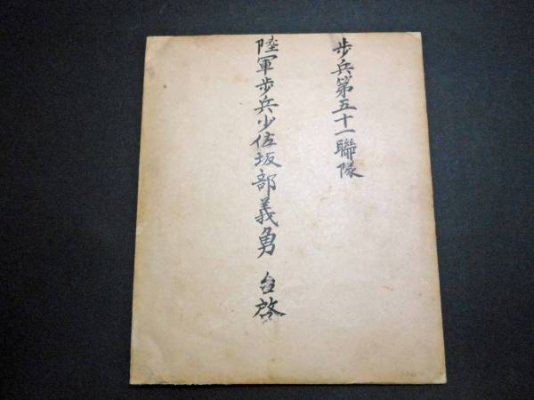 步兵第五十一聯隊
陸軍步兵少佐坂部義勇 台啓